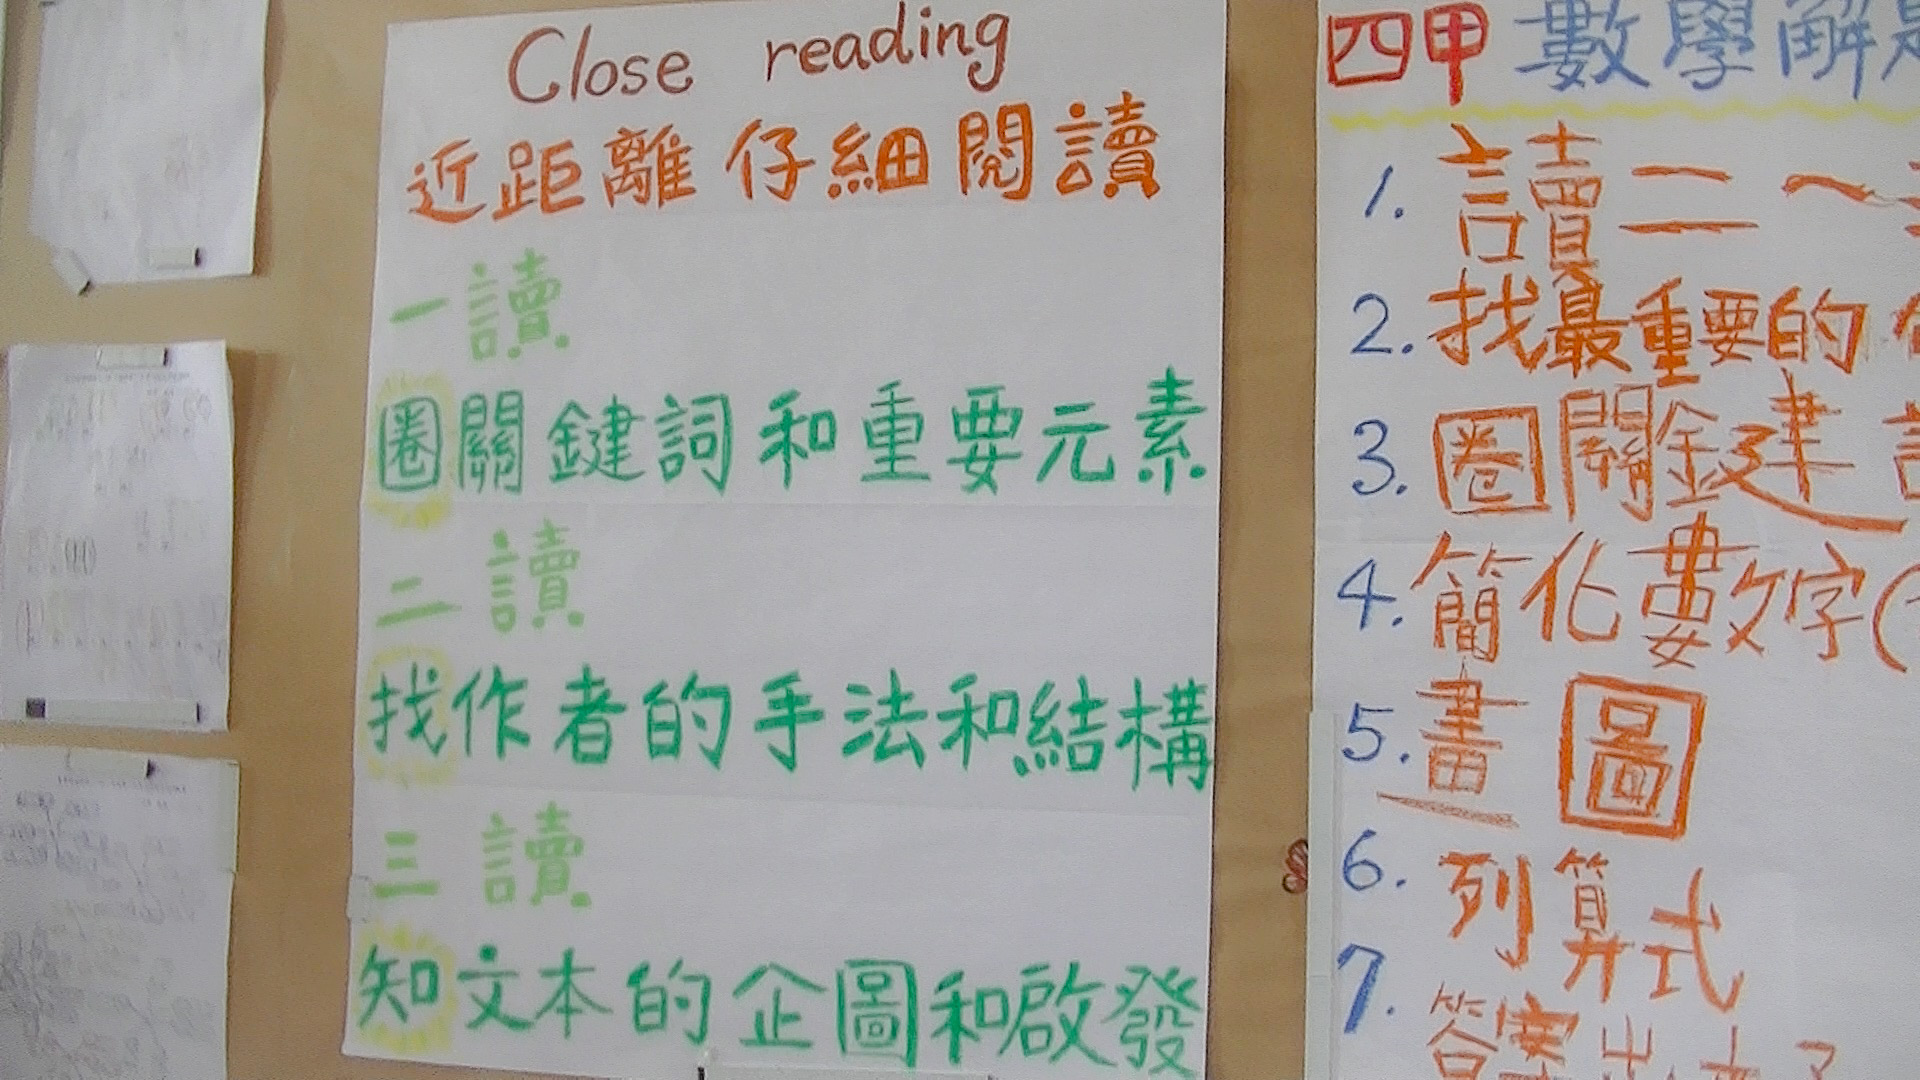 Close reading
近距離仔細閱讀
一讀
圈關鍵詞和重要元素
二讀
找作者的手法和結構
三讀
知文本的企圖和啟發
四甲 數學解
1. 讀二~
2. 找最重要的
3. 圈關鍵
4. 簡化數字(
5. 畫圖
6. 列算式
7. 答案出